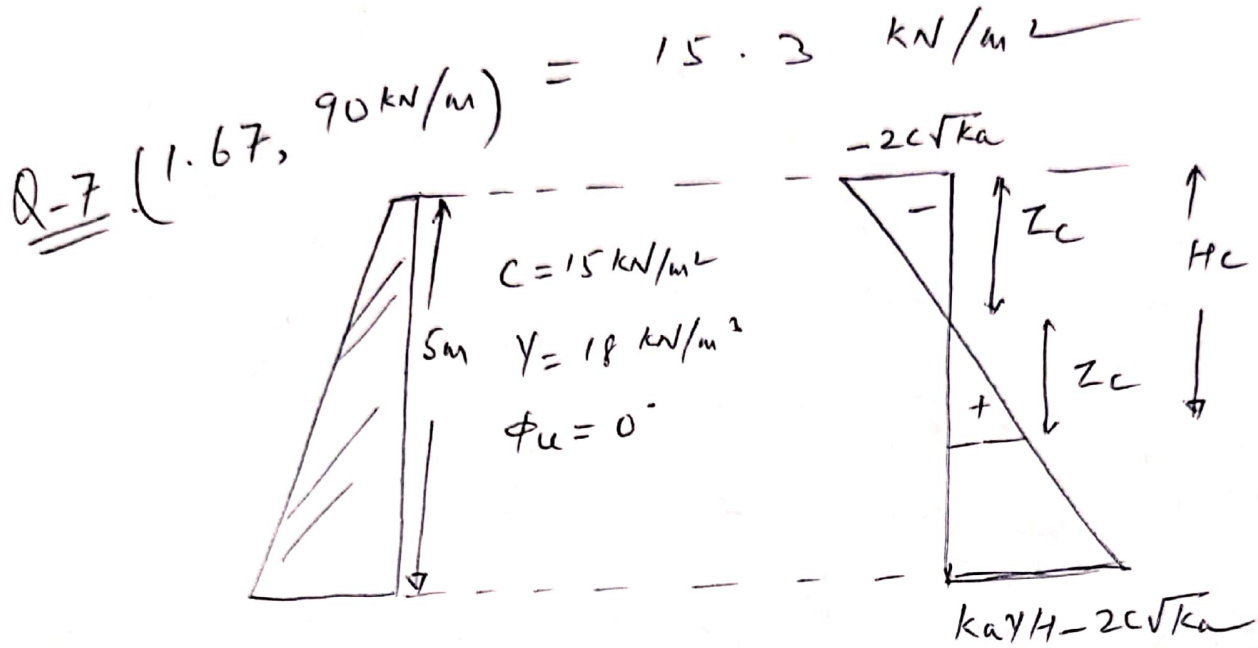 = 15.3 kN/m²
Q-7 (1.67, 90 kN/m)
-2c√ka
-
Zc
Hc
C = 15 kN/m²
5m
γ = 18 kN/m³
Zc
+
ϕu = 0°
kaγH - 2c√ka